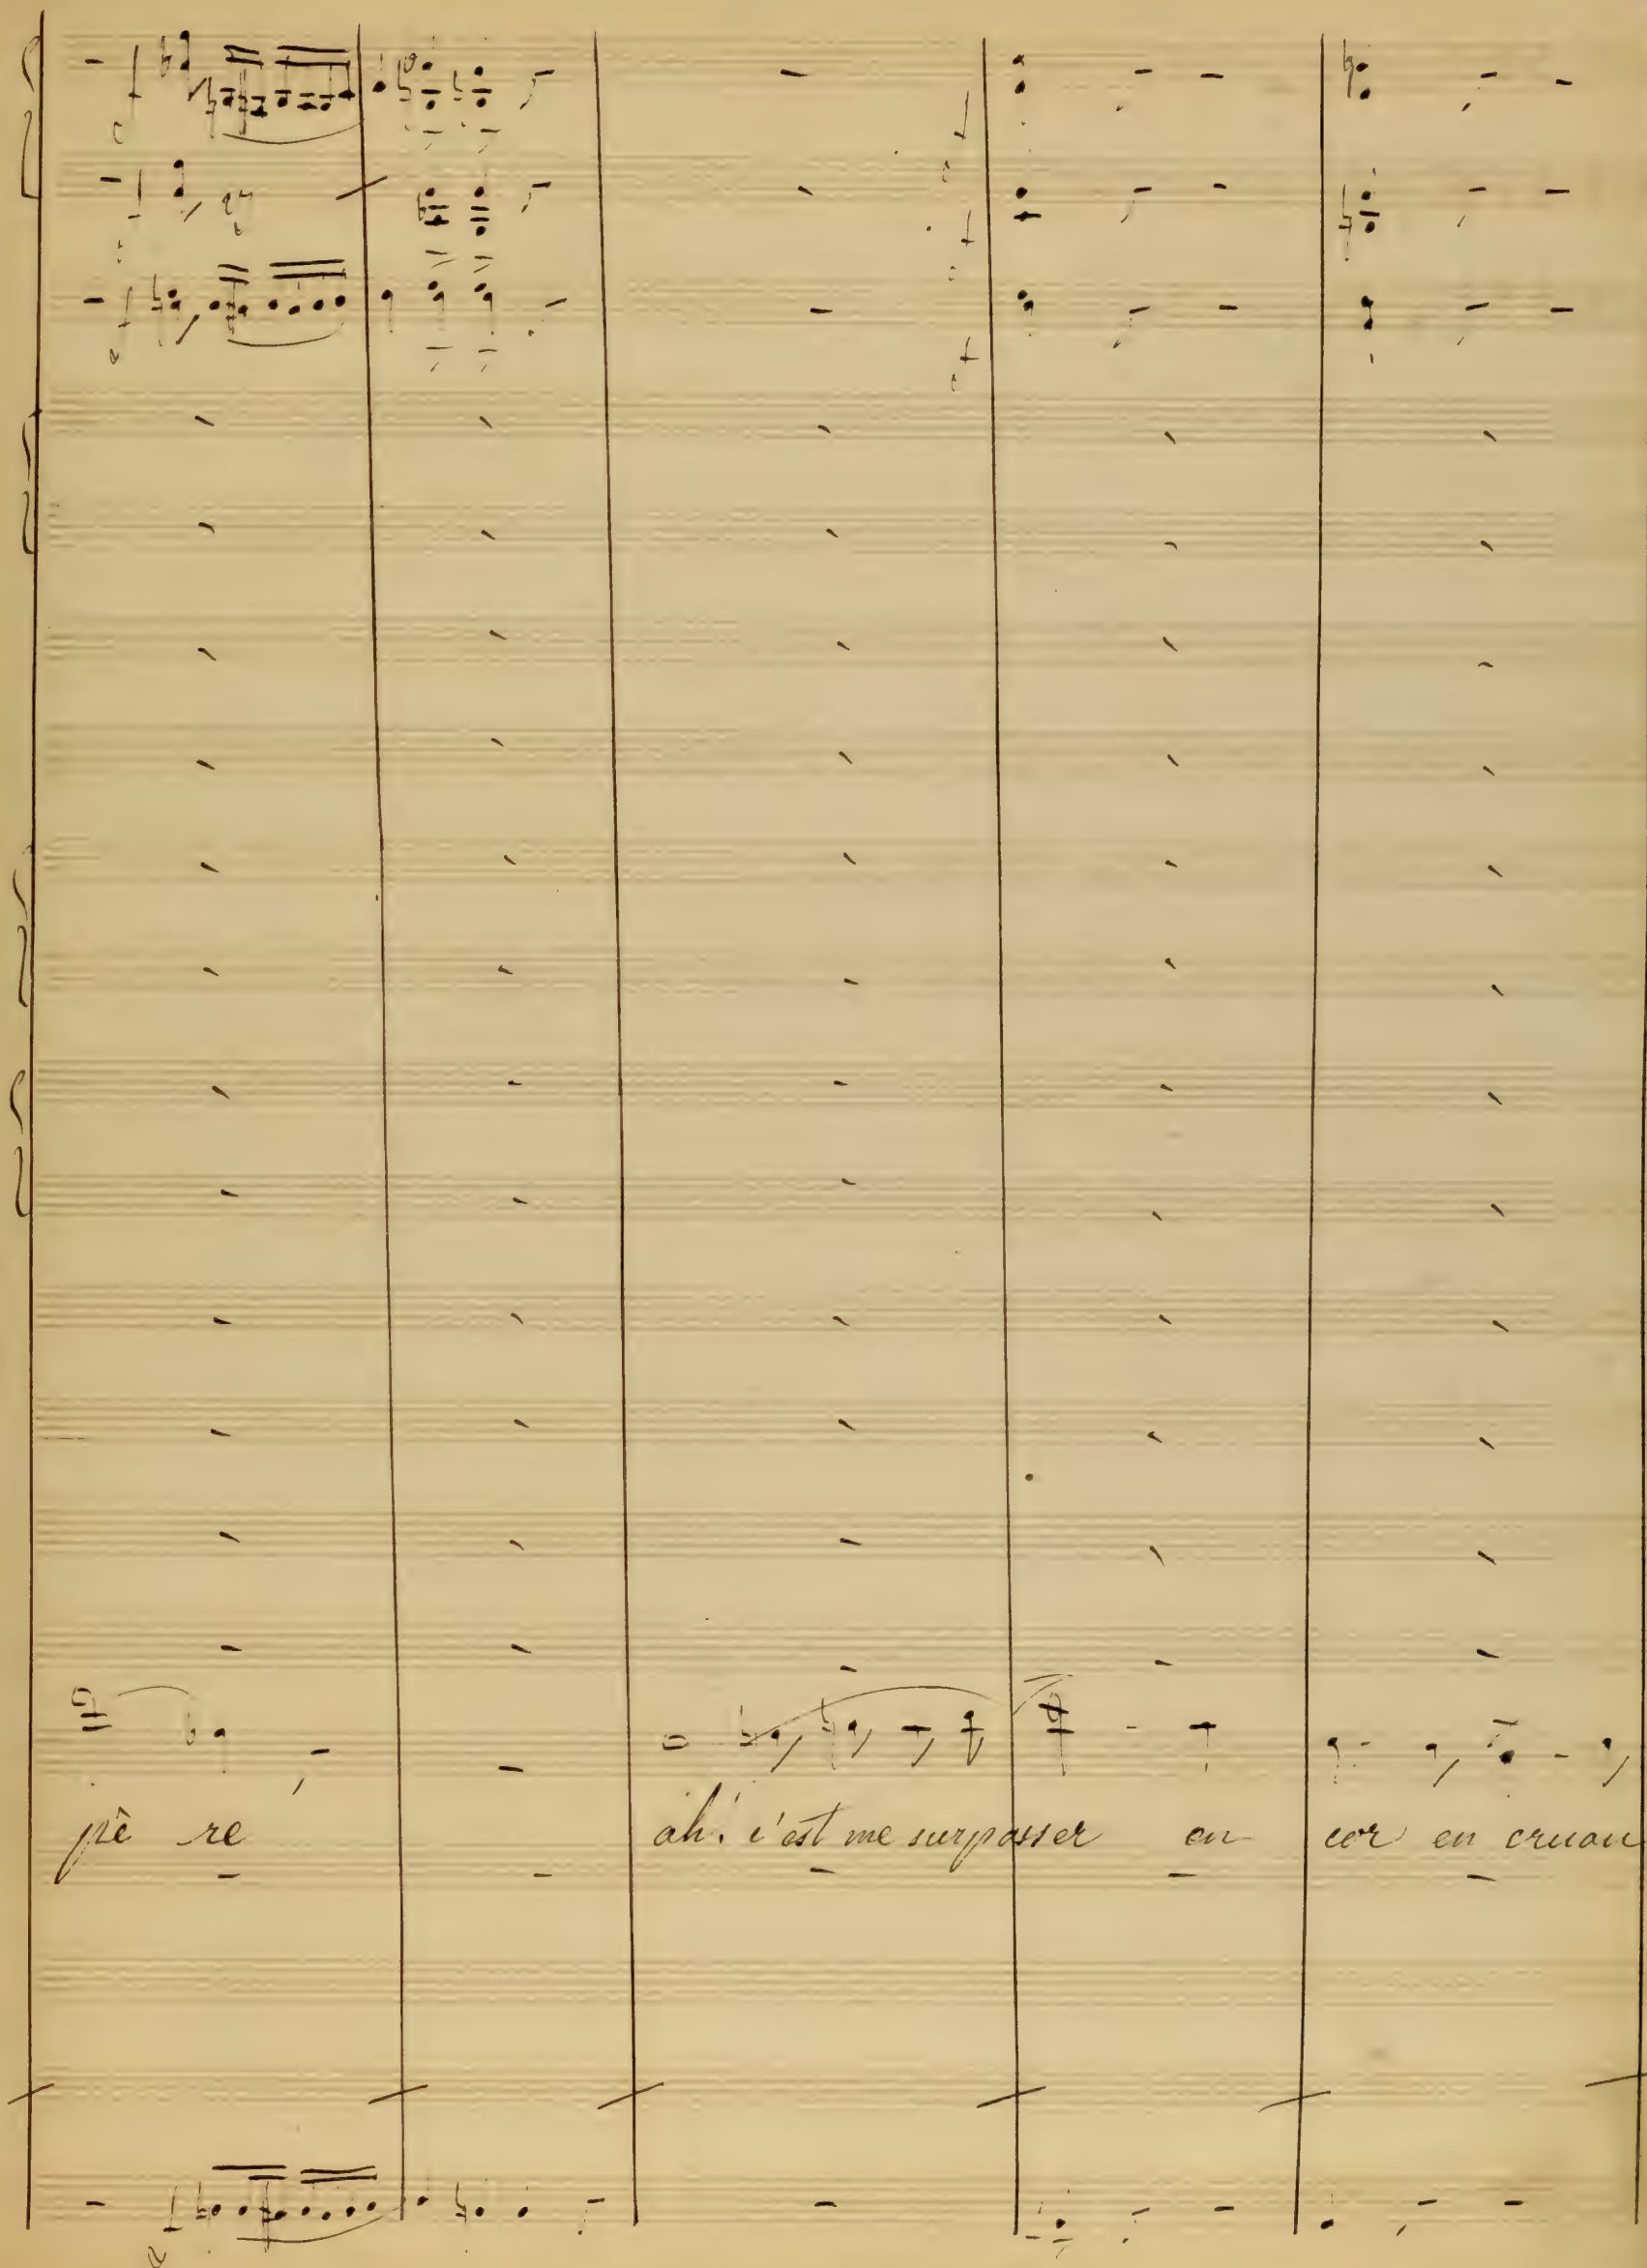 pè re ah! c'est me surpasser en cor en cruau